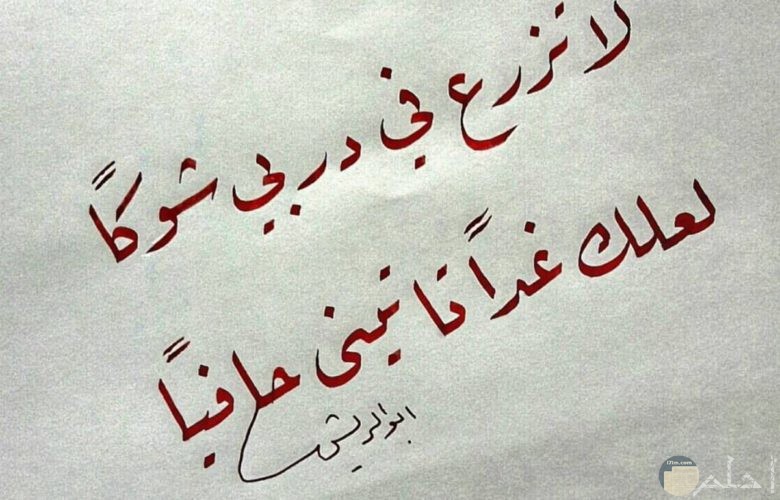 لا تزرع في دربي شوكاً
لعلك غداً تاتيني حافياً
ابو الريش
احلم